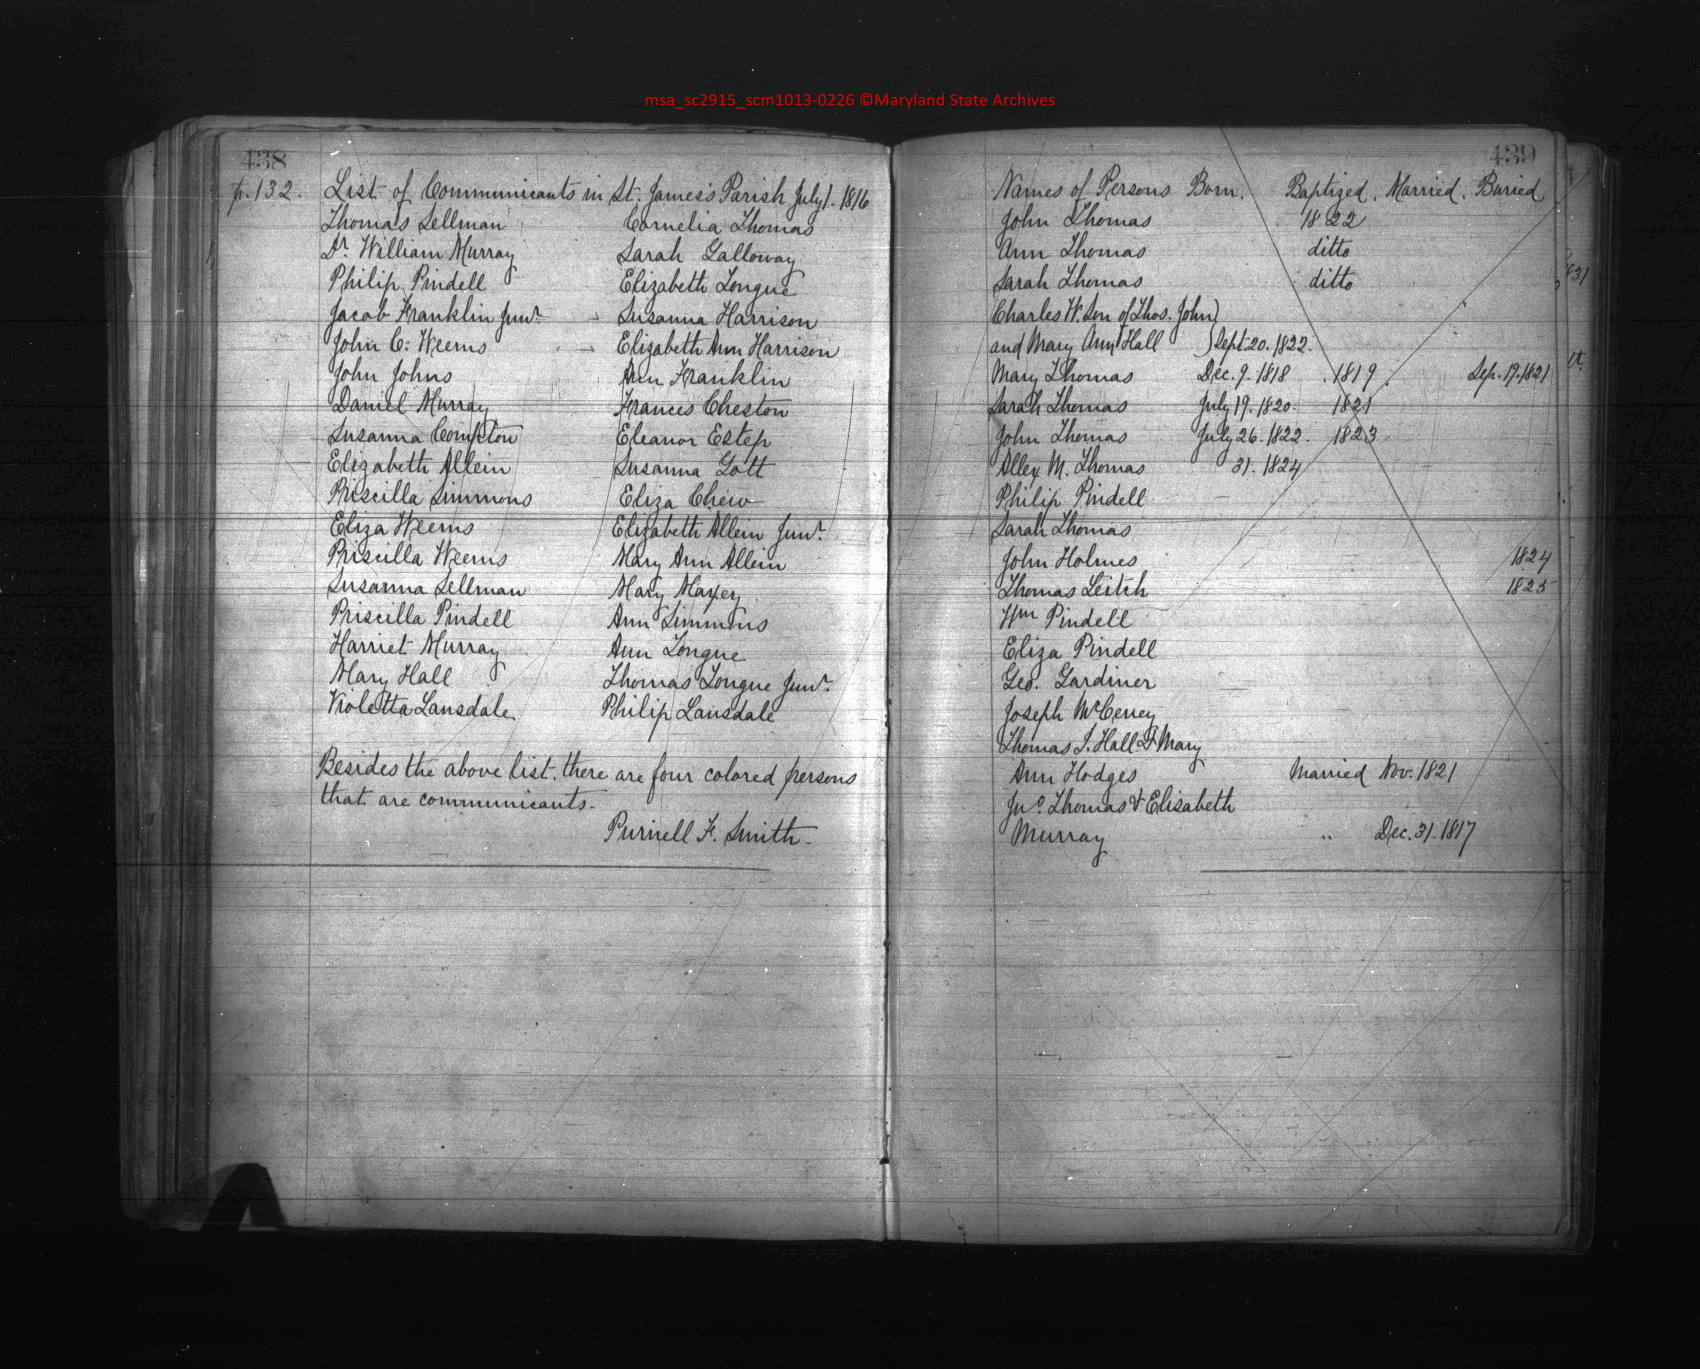 msa_sc2915_scm1013-0226 ©Maryland State Archives
438
p.132. List of Communicants in St. James's Parish July 1. 1816
Thomas Sellman Cornelia Thomas
Dr. William Murray Sarah Galloway
Philip Pindell Elizabeth Tongue
Jacob Franklin Junr. Susanna Harrison
John C. Weems Elizabeth Ann Harrison
John Johns Ann Franklin
Daniel Murray Frances Cheston
Susanna Compton Eleanor Estep
Elizabeth Allein Susanna Gott
Priscilla Simmons Eliza Chew
Eliza Weems Elizabeth Allein Junr.
Priscilla Weems Mary Ann Allein
Susanna Sellman Mary Maxey
Priscilla Pindell Ann Simmons
Harriet Murray Ann Tongue
Mary Hall Thomas Tongue Junr.
Violetta Lansdale Philip Lansdale
Besides the above list, there are four colored persons
that are communicants.
Purnell F. Smith.
439
Names of Persons Born. Baptized. Married. Buried
John Thomas 1822
Ann Thomas ditto
Sarah Thomas ditto
Charles W. Son of Thos. John
and Mary Ann Hall Sept. 20. 1822.
Mary Thomas Dec. 9. 1818 1819. Sep. 19. 1821
Sarah Thomas July 19. 1820. 1821
John Thomas July 26. 1822. 1823
Allex M. Thomas 31. 1824
Philip Pindell
Sarah Thomas
John Holmes 1824
Thomas Leitch 1825
Wm Pindell
Eliza Pindell
Geo. Gardiner
Joseph McCeney
Thomas S. Hall & Mary
Ann Hodges Married Nov. 1821
Jno. Thomas & Elisabeth
Murray " Dec. 31. 1817